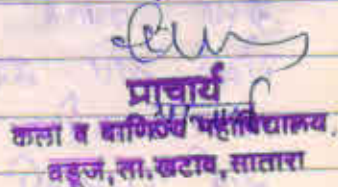 प्राचार्य
कला व वाणिज्य महाविद्यालय,
वडूज, ता. खटाव, सातारा